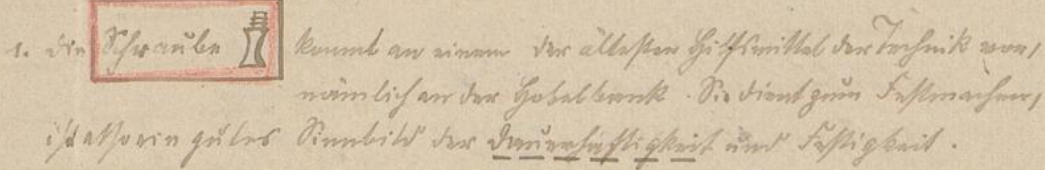 1. Die Schraube kommt an einem der ältesten Hilfsmittel der Technik vor,
nämlich an der Hobelbank. Sie dient zum Festmachen,
ist also ein gutes Sinnbild der Dauerhaftigkeit und Festigkeit.